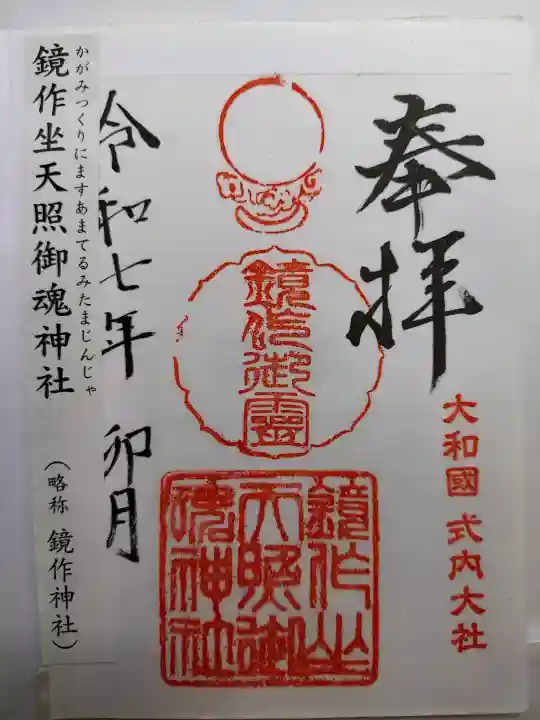 奉拝
大和國 式内大社
鏡作御靈
鏡作坐
天照御
魂神社
令和七年 卯月
かがみつくりにますあまてるみたまじんじゃ
鏡作坐天照御魂神社
(略称 鏡作神社)